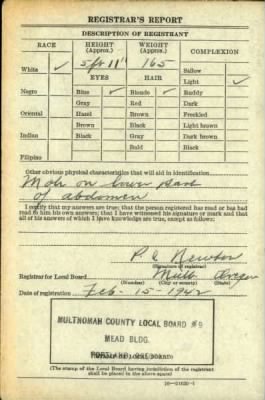 REGISTRAR'S REPORT
DESCRIPTION OF REGISTRANT
RACE HEIGHT (Approx.) WEIGHT (Approx.) COMPLEXION
White ✓ 5 ft 11" 165 Sallow
Light ✓
EYES HAIR
Negro Blue ✓ Blonde ✓ Ruddy
Gray Red Dark
Oriental Hazel Brown Freckled
Brown Black Light brown
Indian Black Gray Dark brown
Bald Black
Filipino
Other obvious physical characteristics that will aid in identification
Mole on lower part
of abdomen
I certify that my answers are true; that the person registered has read or has had
read to him his own answers; that I have witnessed his signature or mark and that
all of his answers of which I have knowledge are true, except as follows:
(Signature of registrar)
Registrar for Local Board Mult Oregon
(Number) (City or county) (State)
Date of registration Feb. 15-1942
MULTNOMAH COUNTY LOCAL BOARD #9
MEAD BLDG.
PORTLAND, OREGON
(STAMP OF LOCAL BOARD)
(The stamp of the Local Board having jurisdiction of the registrant
shall be placed in the above space)